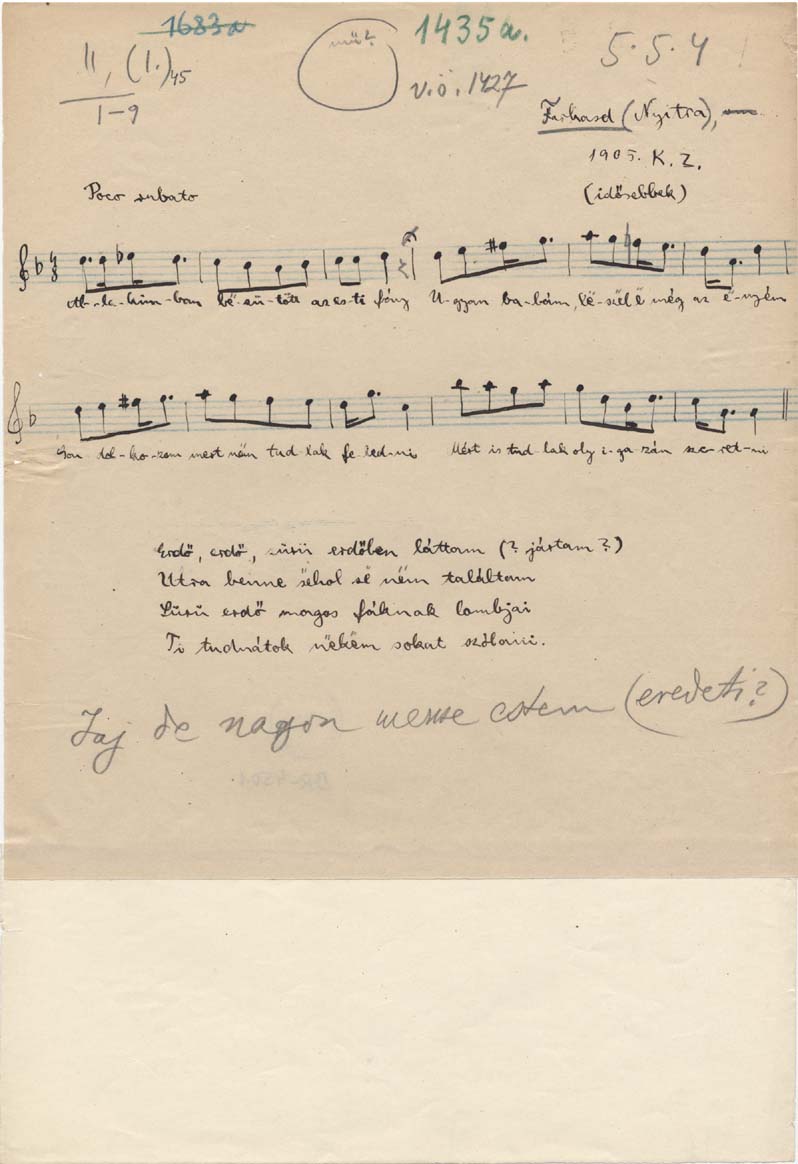 1683a
1435a.
mü?
5.5.4
II, (I.)45
1-9
v.ö. 1427
Farkasd (Nyitra),
1905. K. Z.
(idősebbek)
Poco rubato
4/8
Ab-la-kim-ban bë-sü-tött az es-ti fény U-gyan ba-bám, lë-szël ë még az ë-nyém
Gon-dol-ko-zom mert nëm tud-lak fe-led-ni Mért is tud-lak oly i-ga-zán sze-ret-ni
Erdő, erdő, sürü erdőben láttam (? jártam?)
Utra benne sëhol së nëm találtam
Sürü erdő magos fáknak lombjai
Ti tudnátok nëkëm sokat szólani.
Jaj de nagyon messe estem (eredeti?)